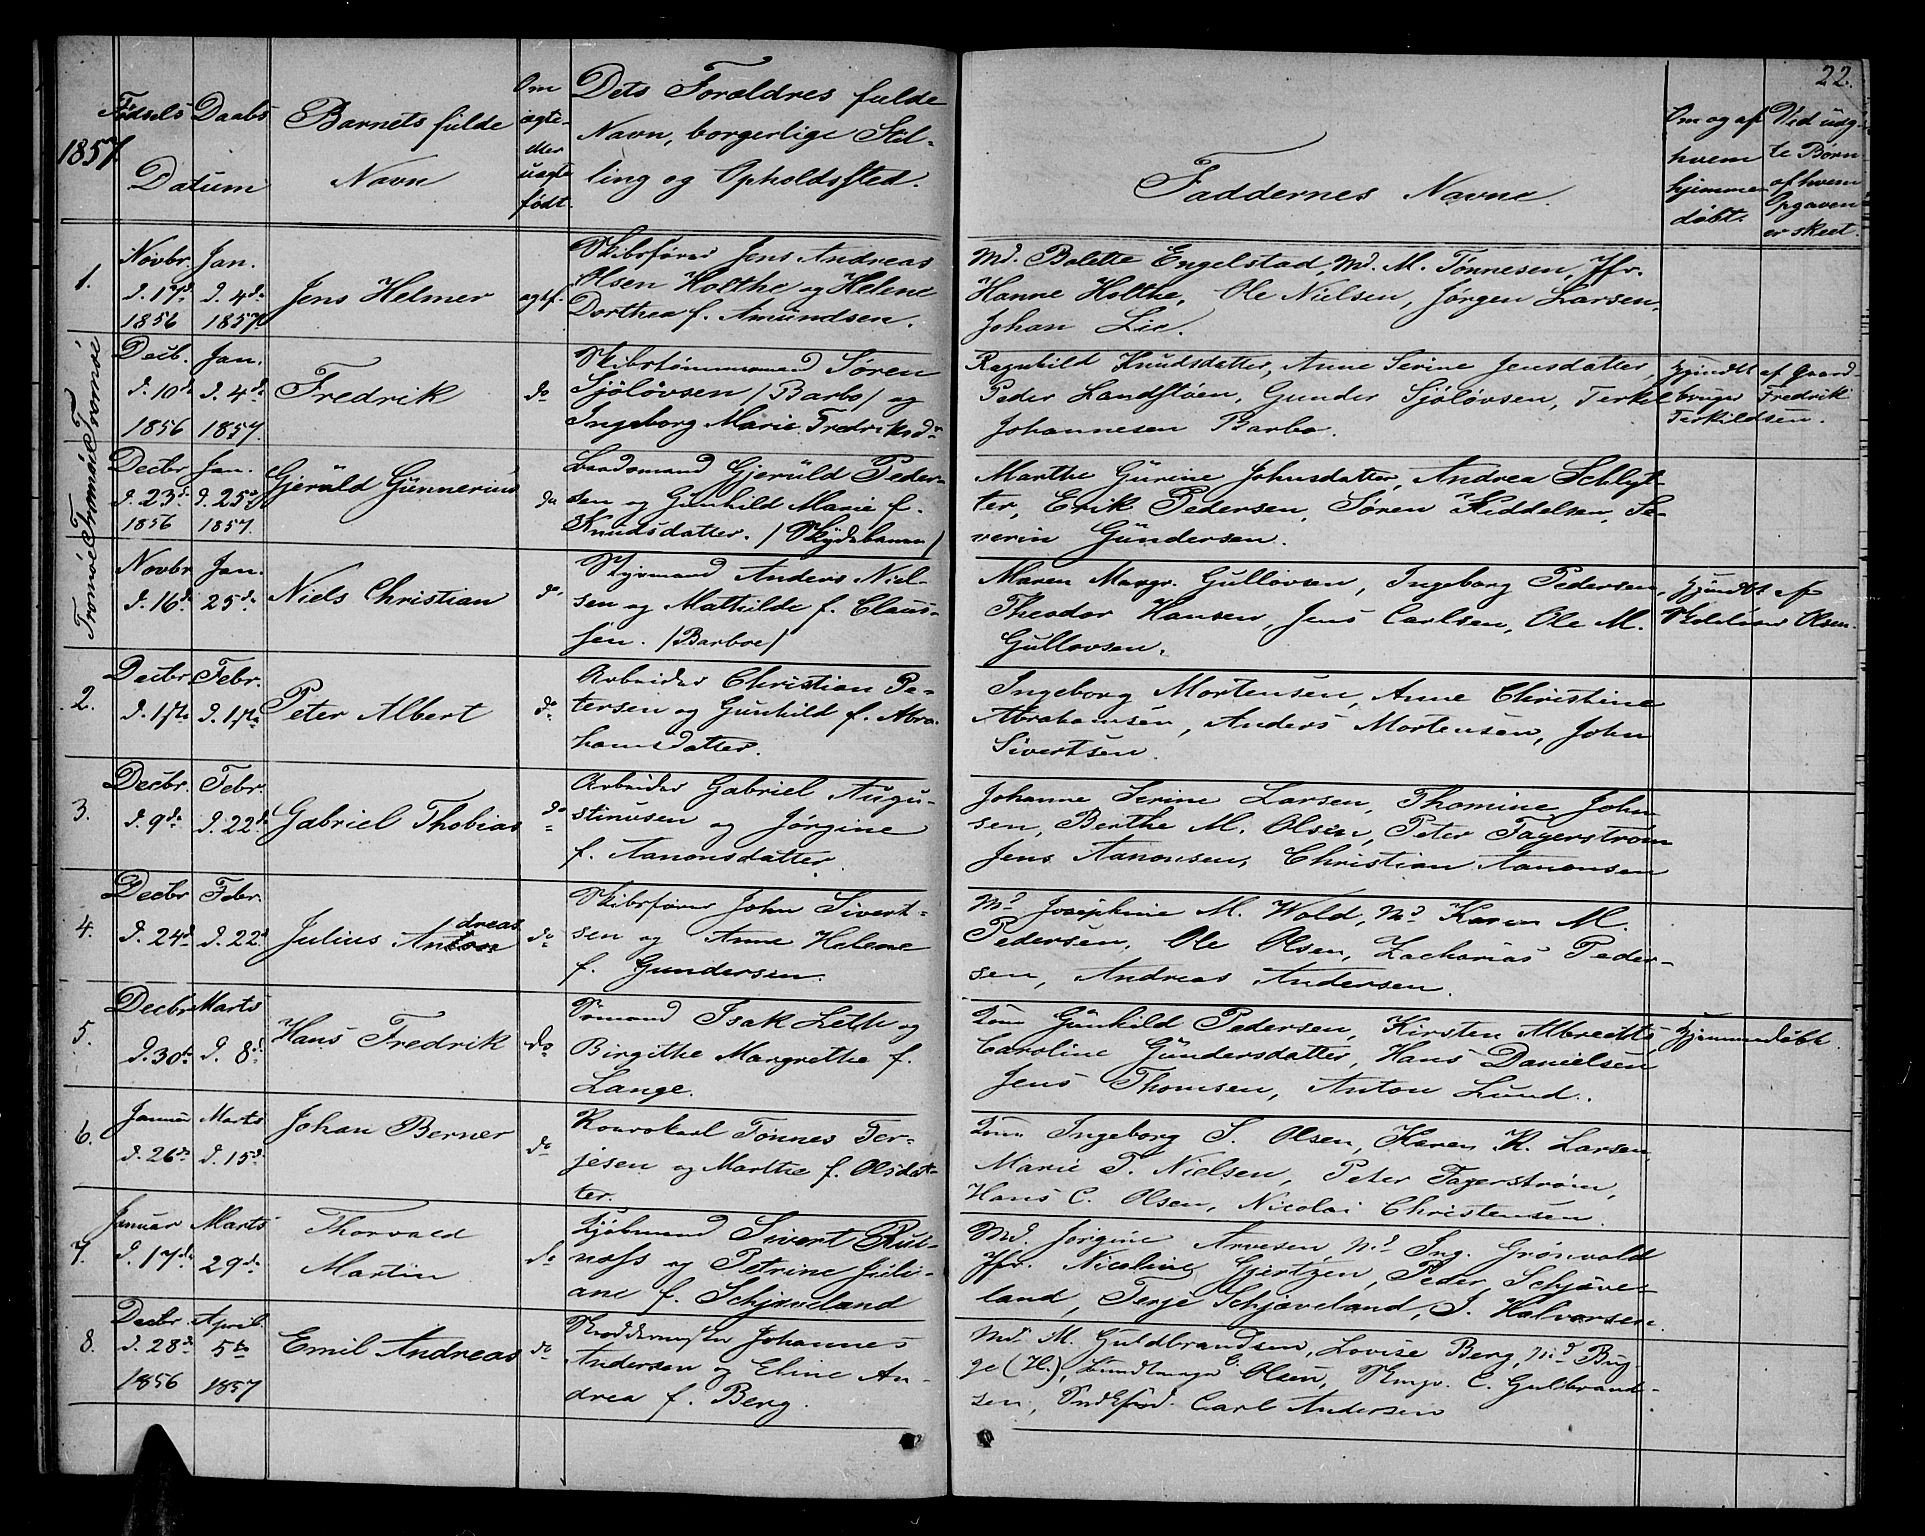 22.
1857.
Fødsels Daabs
Datum
Barnets fulde
Navn
Om
ægte
eller
uægte
født.
Dets Forældres fulde
Navn, borgerlige Stil-
ling og Opholdssted.
Faddernes Navne.
Om og af
hvem
hjemme
døbt.
Ved uæg-
te Børn
af hvem
Opgaven
er skeet.
1.
Novbr
d. 17de
1856
Jan.
d. 4de
1857
Jens Helmer
ægtf.
Skibsfører Jens Andreas
Olsen Holthe og Helene
Dorthea f. Amundsen.
Md. Bolette Engelstad, Md. M. Tønnesen, Jfr.
Hanne Holthe, Ole Nielsen, Jørgen Larsen,
Johan Lie.
Tromøe
Decb.
d. 10de
1856
Jan.
d. 4de
1857.
Fredrik
do
Skibstømmermand Søren
Sjøløvsen /Barbo/ og
Ingeborg Marie Fredriksdr
Ragnhild Knudsdatter, Anne Serine Jensdatter,
Peder Landstøen, Gunder Sjøløvsen, Terkel
Johannesen Barbo.
hjemdbt af Gaard-
bruger Fredrik
Terkildsen.
Tromøe
Decbr
d. 23de
1856
Jan.
d. 25de
1857.
Gjeruld Gunnerius
do
Gjeruld Peder-
sen og Gunhild Marie f.
Knudsdatter. /Skydebanen/
Marthe Gurine Johnsdatter, Andrea Schlyt-
ter, Erik Pedersen, Søren Kiddelsen, Se-
verin Gundersen.
Tromøe
Novbr
d. 16de
Jan.
25de
Niels Christian
do
Styrmand Anders Niel-
sen og Mathilde f. Claus-
sen. /Barboe/
Maren Margr. Gulløvsen, Ingeborg Pedersen,
Theodor Hansen, Jens Carlsen, Ole M.
Gulløvsen.
hjemdbt af
Olsen.
2.
Decbr
d. 1ste
Febr.
d. 1ste
Peter Albert
do
Arbeider Christian Pe-
tersen og Gunhild f. Abra-
hamsdatter.
Ingeborg Mortensen, Anne Christine
Abrahamsen, Anders Mortensen, John
Sivertsen.
3.
Decbr.
d. 9de
Febr.
d. 22de
Gabriel Thobias
do
Arbeider Gabriel Augu-
stinusen og Jørgine
f. Aanonsdatter.
Johanne Serine Larsen, Thomine John
sen, Berthe M. Olsen, Peter Fagerstrøm
Jens Aanonsen, Christian Aanonsen
4.
Decbr
d. 24d
Febr.
d. 22d
dreas
Julius Anton
do
Skibsfører John Sivert-
sen og Anne Helene
f. Gundersen.
Md Josephine M. Wold, Md Karen M.
Pedersen, Ole Olsen, Zacharias Peder-
sen, Andreas Andersen.
5.
Decbr
d. 30te
Marts
d. 8de
Hans Fredrik
do
Sømand Isak Leth og
Birgithe Margrethe f.
Lange.
Gunhild Pedersen, Kirsten Albrechts
Caroline Gundersdatter, Hans Danielsen
Jens Thomsen, Anton Lund.
Hjemmedøbt.
6.
Januar
d. 26de
Marts
d. 15de
Johan Berner
do
Tønnes Ter-
jesen og Marthe f. Olsdat-
ter.
Ingeborg S. Olsen, Karen K. Larsen,
Marie T. Nielsen, Peter Fagerstrøm,
Hans C. Olsen, Nicolai Christensen.
7.
Januar
d. 17de
Marts
29de
Thorvald
Martin
do
Kjøbmand Sivert Rui-
næss og Petrine Juli-
ane f. Schjæveland
Md. Jørgine Arvesen, Md Ing. Grønvold
Jfr. Nicoline Gjertzen, Peder Schjæve-
land, Terje Schjæveland, J. Halvorsen.
8.
Decbr
d. 28de
1856
April
5te
1857
Emil Andreas
do
Johannes
Andersen og Eline An-
drea f. Berg.
Md. M. Guldbrandsen, Lovise Berg, Md Bug-
ge (H.), Olsen, C. Gulbrand-
sen, Carl Andersen